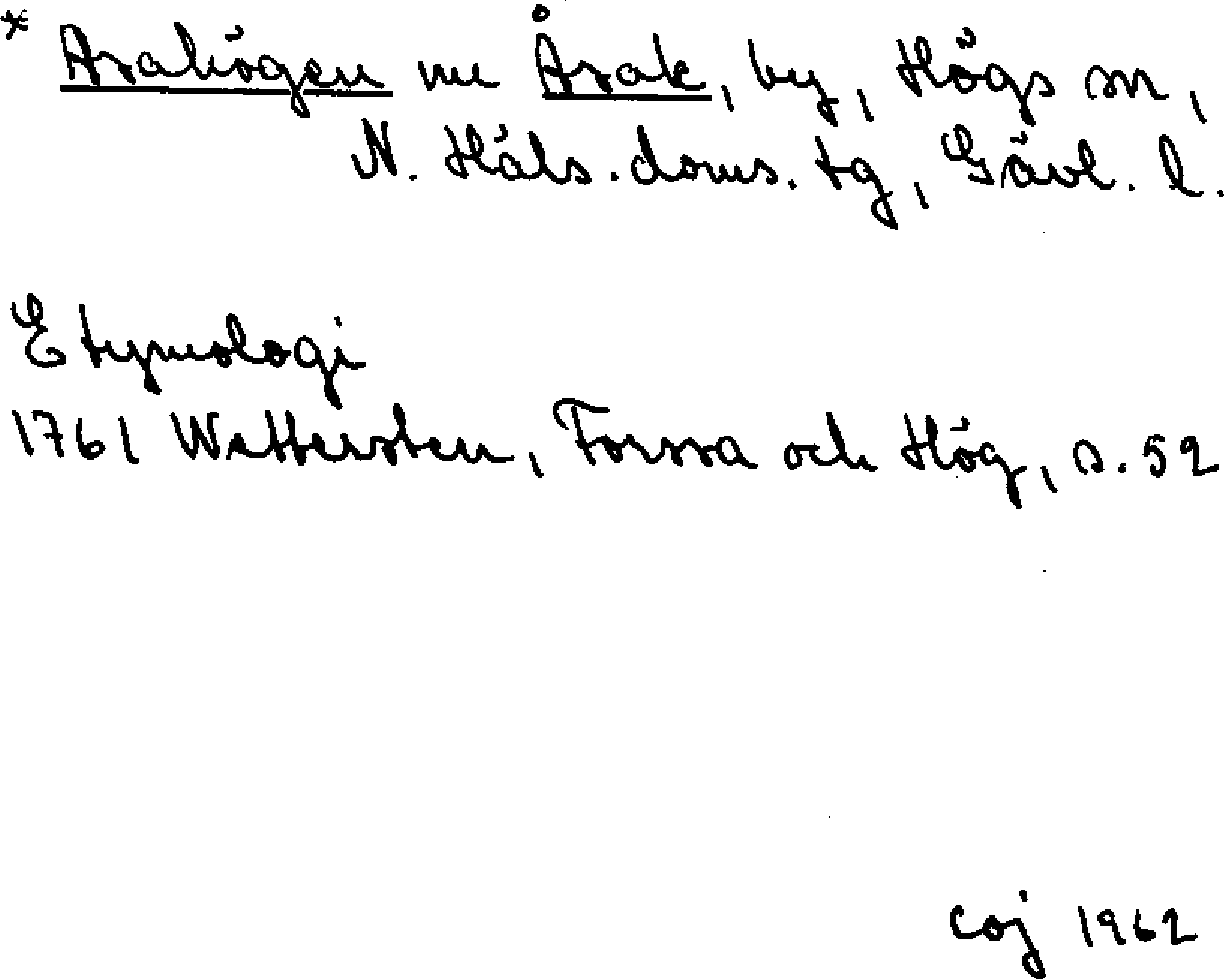 * Asahögen nu Åsak, by, Högs sn,
N. Häls. doms. tg, Gävl. l.
Etymologi
1761 Wettersten, Forssa och Hög, s. 52
coj 1962